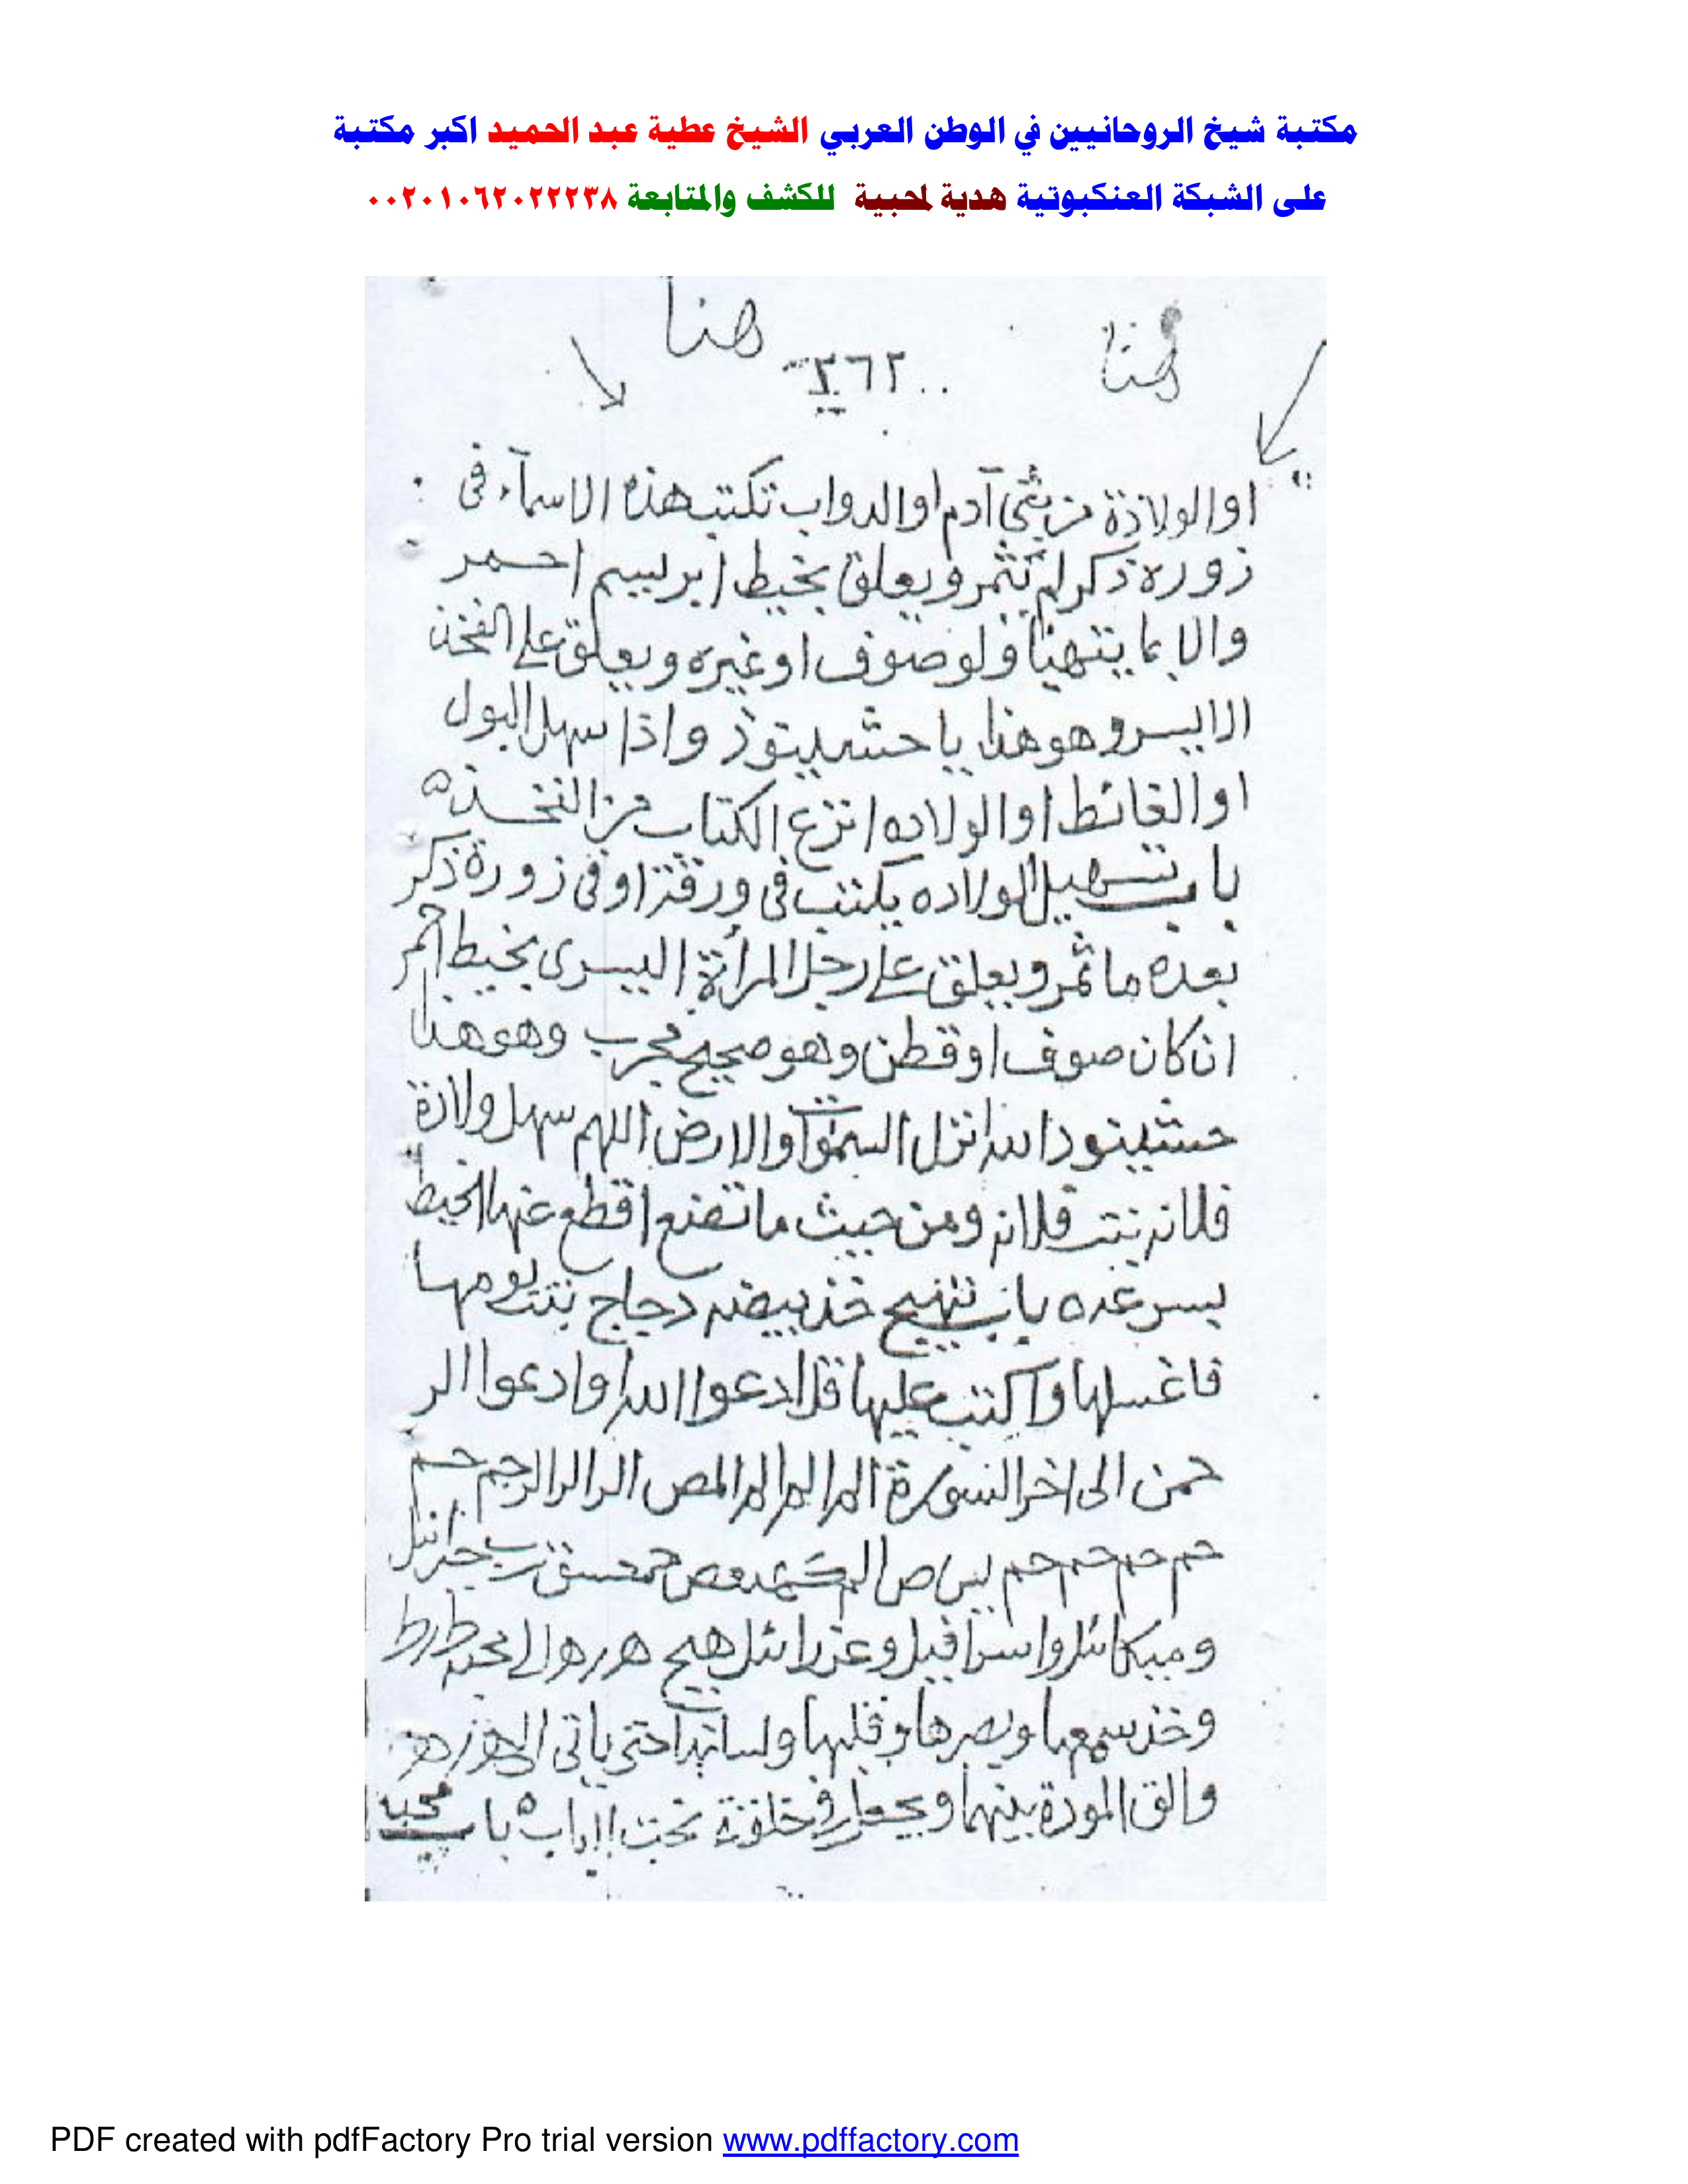 مكتبة شيخ الروحانيين في الوطن العربي الشيخ عطية عبد الحميد اكبر مكتبة
على الشبكة العنكبوتية هدية لمحبية للكشف والمتابعة ٠٠٢٠١٠٦٢٠٢٢٢٣٨
هنا هنا
٢٦٢
او الولادة من بني آدم او الدواب تكتب هذه الاسمآء فى
زوره ذكر لم تثمر ويعلق بخيط ابريسم احمر
والا بما يتهيأ ولو صوف او غيره ويعلق على الفخذ
الايسر وهو هذا يا حشليتوذ واذا سهل البول
او الغائط او الولاده انزع الكتاب من الفخذ ه
باب تسهيل الولاده يكتب فى ورقة او فى زورة ذكر
بعده ما ثمر ويعلق على رجل المرأة اليسرى بخيط احمر
ان كان صوف او قطن وهو صحيح مجرب وهو هذا
حشليتود الله انزل السموات والارض اللهم سهل ولادة
فلانه بنت فلانه ومن حيث ما تضع اقطع عنها الخيط
بسرعه باب تهيج خذ بيضه دجاج بنت يومها
فاغسلها واكتب عليها قل ادعوا الله او ادعوا الر
حمن الى اخر السورة الم الم الم المص الر الر الر حم حم
حم حم حم حم يس ص الم كهيعص حمعسق رب جبرائيل
وميكائل واسرافيل وعزرائل هيج
وخذ سمعها وبصرها وقلبها ولسانها حتى ياتى
والق المودة بينهما تحت باب محبه
PDF created with pdfFactory Pro trial version www.pdffactory.com